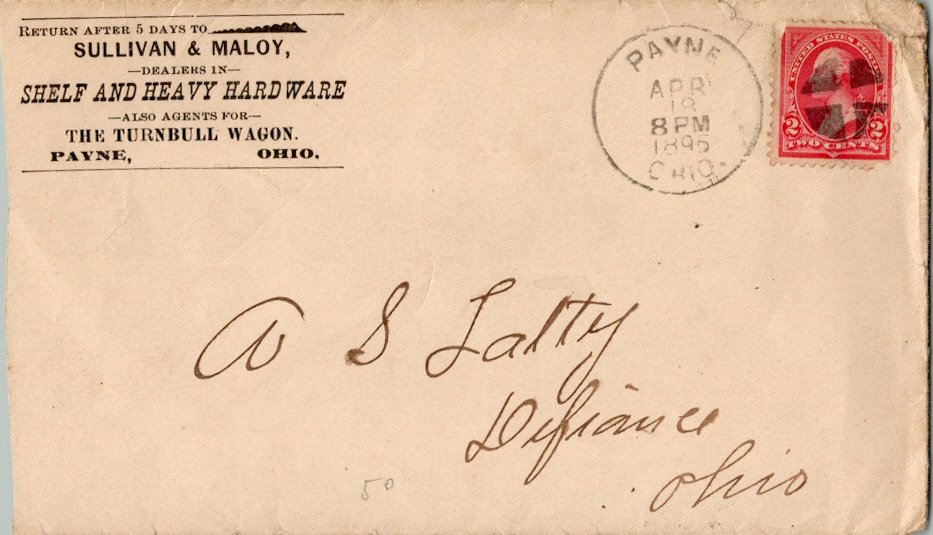 RETURN AFTER 5 DAYS TO
SULLIVAN & MALOY,
—DEALERS IN—
SHELF AND HEAVY HARDWARE
—ALSO AGENTS FOR—
THE TURNBULL WAGON.
PAYNE, OHIO.
PAYNE
APR
18
8 PM
1895
OHIO
UNITED STATES POSTAGE
2 2
TWO CENTS
A S Latty
Defiance
Ohio
50